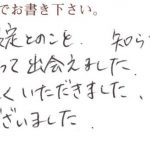 でお書き下さい。
定とのこと、知ら
って出会えました。
くいただきました、
ございました。